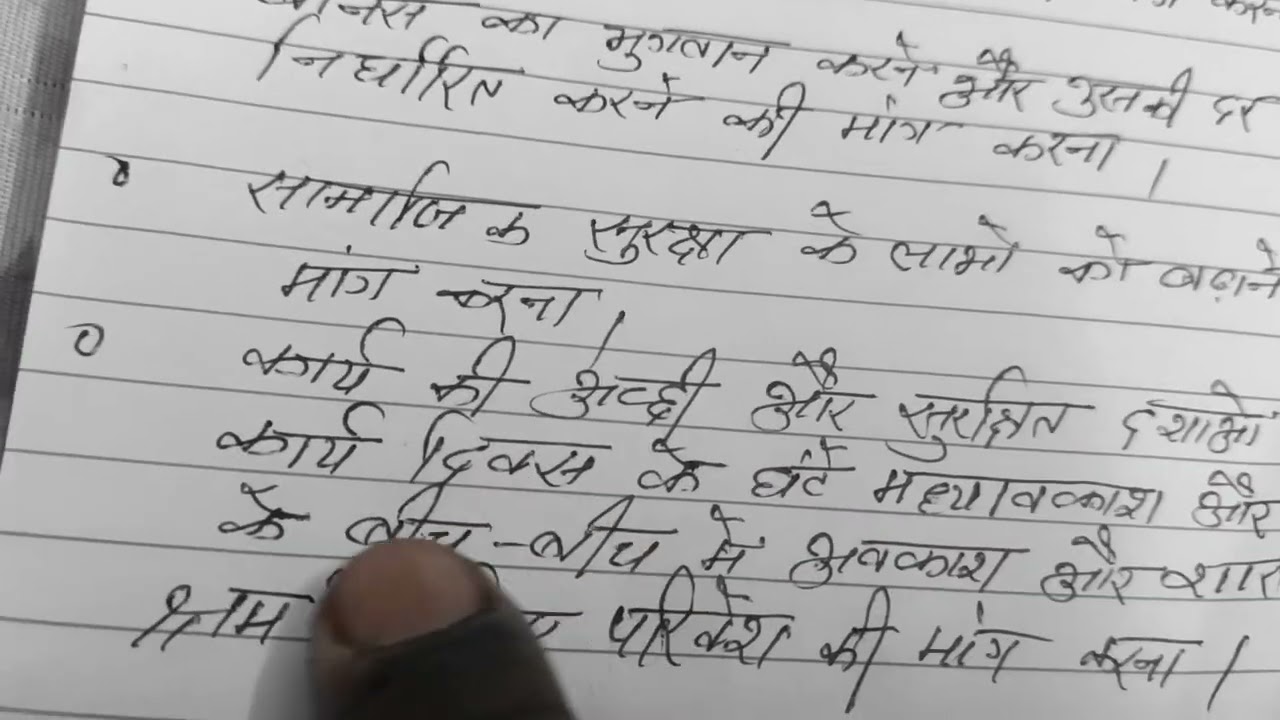 का भुगतान करने और उसकी दर
निर्धारित करने की मांग करना।
सामाजिक सुरक्षा के लाभो को बढ़ाने
मांग करना।
कार्य की अच्छी और सुरक्षित दशाओ
कार्य दिवस के घंटे मध्यावकाश और
के बीच-बीच में अवकाश और
श्रम परिवेश की मांग करना।